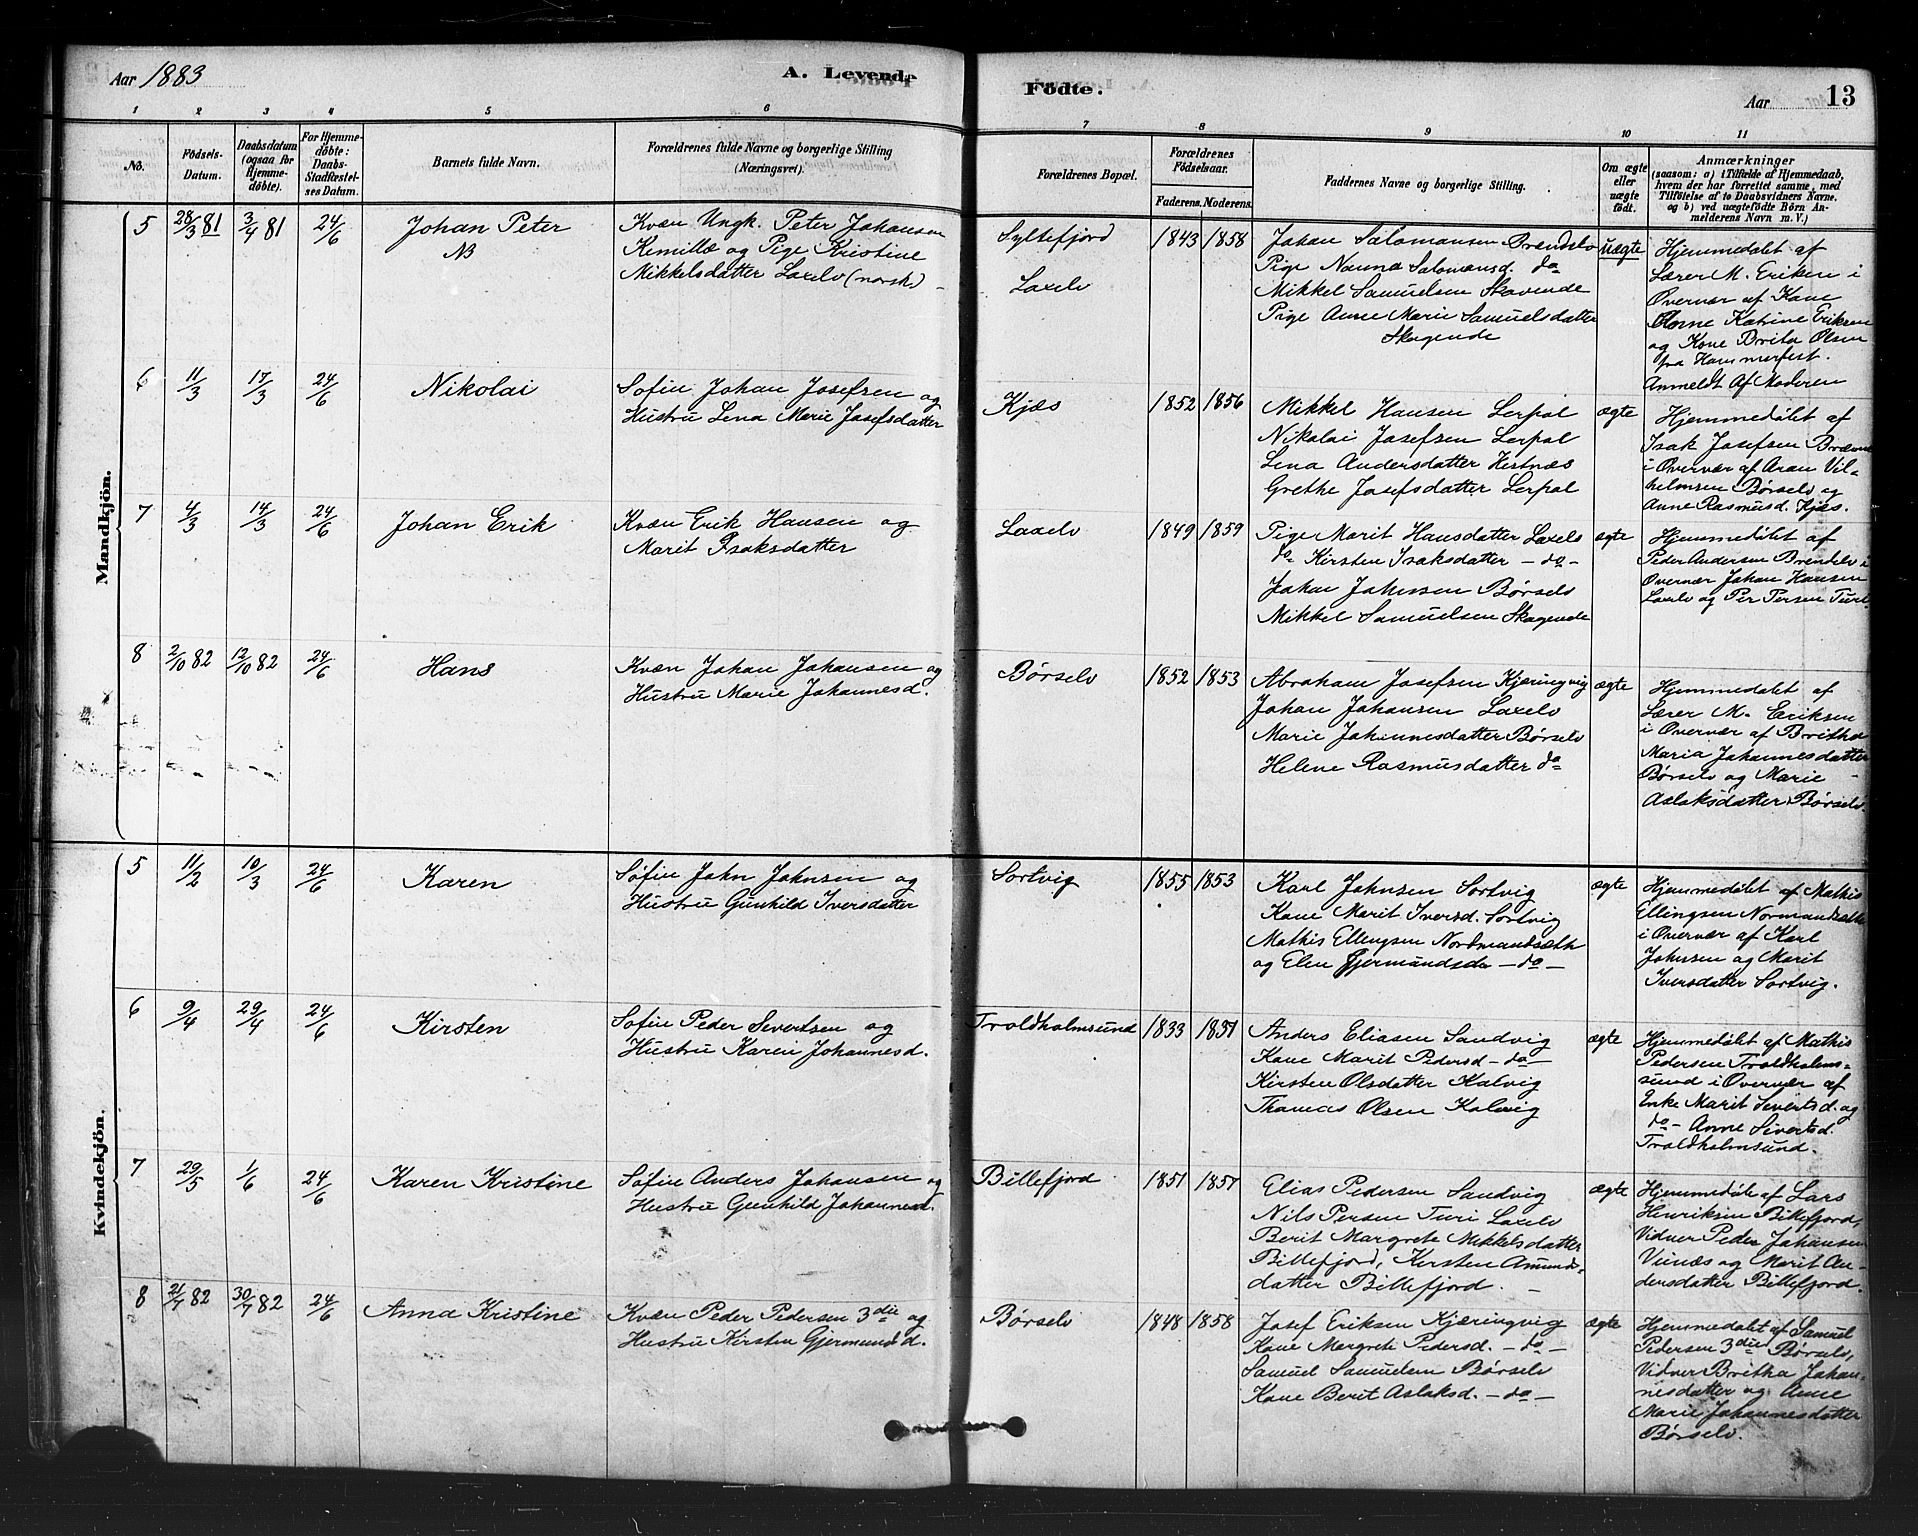 Aar 1883
A. Levende
Födte.
Aar
13
1 2 3 4 5 6 7 8 9 10 11
No.
Födsels-Datum.
Daabsdatum (ogsaa for Hjemmedöbte).
For Hjemmedöbte: Daabs-Stadfæstelses Datum.
Barnets fulde Navn.
Forældrenes fulde Navne og borgerlige Stilling (Næringsvei).
Forældrenes Bopæl.
Forældrenes Födselsaar.
Faderens. Moderens.
Faddernes Navne og borgerlige Stilling.
Om ægte eller uægte födt.
Anmærkninger
(saasom: a) i Tilfælde af Hjemmedaab,
hvem der har forrettet samme, med
Tilföielse af to Daabsvidners Navne.
og b) ved uægtefödte Börn Anmelderens Navn m. V.)
Mandkjön.
5 28/3 81 3/4 81 24/6
Johan Peter
NB
Kvæn Ungk. Peter Johansen
Kemillæ og Pige Kristine
Mikkelsdatter Laxelv (norsk)
Syltefjord
Laxelv
1843 1858
Johan Salomansen Brændelv
Pige Nanna Salomansd. do
Mikkel Samuelsen Skavende
Pige Anne Marie Samuelsdatter
Skagende
uægte
Hjemmedøbt af
Lærer M. Eriksen i
Overvær af Kone
Katrine Eriksen
og Kone Brita Olsen
fra Hammerfest.
Anmeldt af Moderen
6 11/3 17/3 24/6
Nikolai
Søfin Johan Josefsen og
Hustru Lena Marie Josefsdatter
Kjæs
1852 1856
Mikkel Hansen Lerpol
Nikolai Josefsen Lerpol
Lena Andersdatter Hestnæs
Grethe Josefsdatter Lerpol
ægte
Hjemmedøbt af
Isak Josefsen
i Overvær af Aron Vilhelmsen Børselv og
Anne Rasmusd. Kjæs.
7 4/3 14/3 24/6
Johan Erik
Kvæn Erik Hansen og
Marit Isaksdatter
Laxelv
1849 1859
Pige Marit Hansdatter Laxelv
do Kirsten Isaksdatter - do -
Johan Johnsen Børselv
Mikkel Samuelsen Skagende
ægte
Hjemmedøbt af
Peder Andersen Brendelv i
Overvær Johan Hansen
Laxelv og Per Persen Turi
8 2/10 82 12/10 82 24/6
Hans
Kvæn Johan Johansen og
Hustru Marie Johannesd.
Børselv
1852 1853
Abraham Josefsen Kjæringvig
Johan Johansen Laxelv
Marie Johannesdatter Børselv
Helene Rasmusdatter do
ægte
Hjemmedøbt af
Lærer M. Eriksen
i Overvær af Britha
Maria Johannesdatter
Børselv og Marie
Aslaksdatter Børselv.
Kvindekjön.
5 11/2 10/3 24/6
Karen
Søfin John Johnsen og
Hustru Gunhild Iversdatter
Sortvig
1855 1853
Karl Johnsen Sortvig
Kone Marit Iversd. Sortvig
Mathis Ellingsen Nordmandsæth
og Elen Gjermundsd. - do -
ægte
Hjemmedøbt af Mathis
Ellingsen Normandsæth
i Overvær af Karl
Johnsen og Marit
Iversdatter Sortvig.
6 9/4 29/4 24/6
Kirsten
Søfin Peder Severtsen og
Hustru Karen Johannesd.
Troldholmsund
1833 1851
Anders Eliasen Sandvig
Kone Marit Pedersd - do -
Kirsten Olsdatter Kalvig
Thomas Olsen Kolvig
ægte
Hjemmedøbt af Mathis
Pedersen Troldholmsund i Overvær af
Enke Marit Severtsd. og
do - Anne Sivertsd.
Troldholmsund.
7 29/5 1/6 24/6
Karen Kristine
Søfin Anders Johansen og
Hustru Gunhild Johannesd.
Billefjord
1851 1857
Elias Pedersen Sandvig
Nils Persen Turi Laxelv
Berit Margrete Mikkelsdatter
Billefjord, Kirsten Amundsdatter Billefjord.
ægte
Hjemmedøbt af Lars
Henriksen Billefjord,
Vidner Peder Johansen
Veinæs og Marit Andersdatter Billefjord.
8 21/7 82 30/7 82 24/6
Anna Kristine
Kvæn Peder Pedersen 3die og
Hustru Kirsten Gjermundsd.
Børselv
1848 1858
Josef Eriksen Kjæringvig
Kone Margrete Pedersd. - do -
Samuel Samuelsen Børselv
Kone Berit Aslaksd. - do -
ægte
Hjemmedøbt af Samuel
Pedersen 3die Børselv,
Vidner Britha Johannesdatter og Anne
Marie Johannesdatter
Børselv.